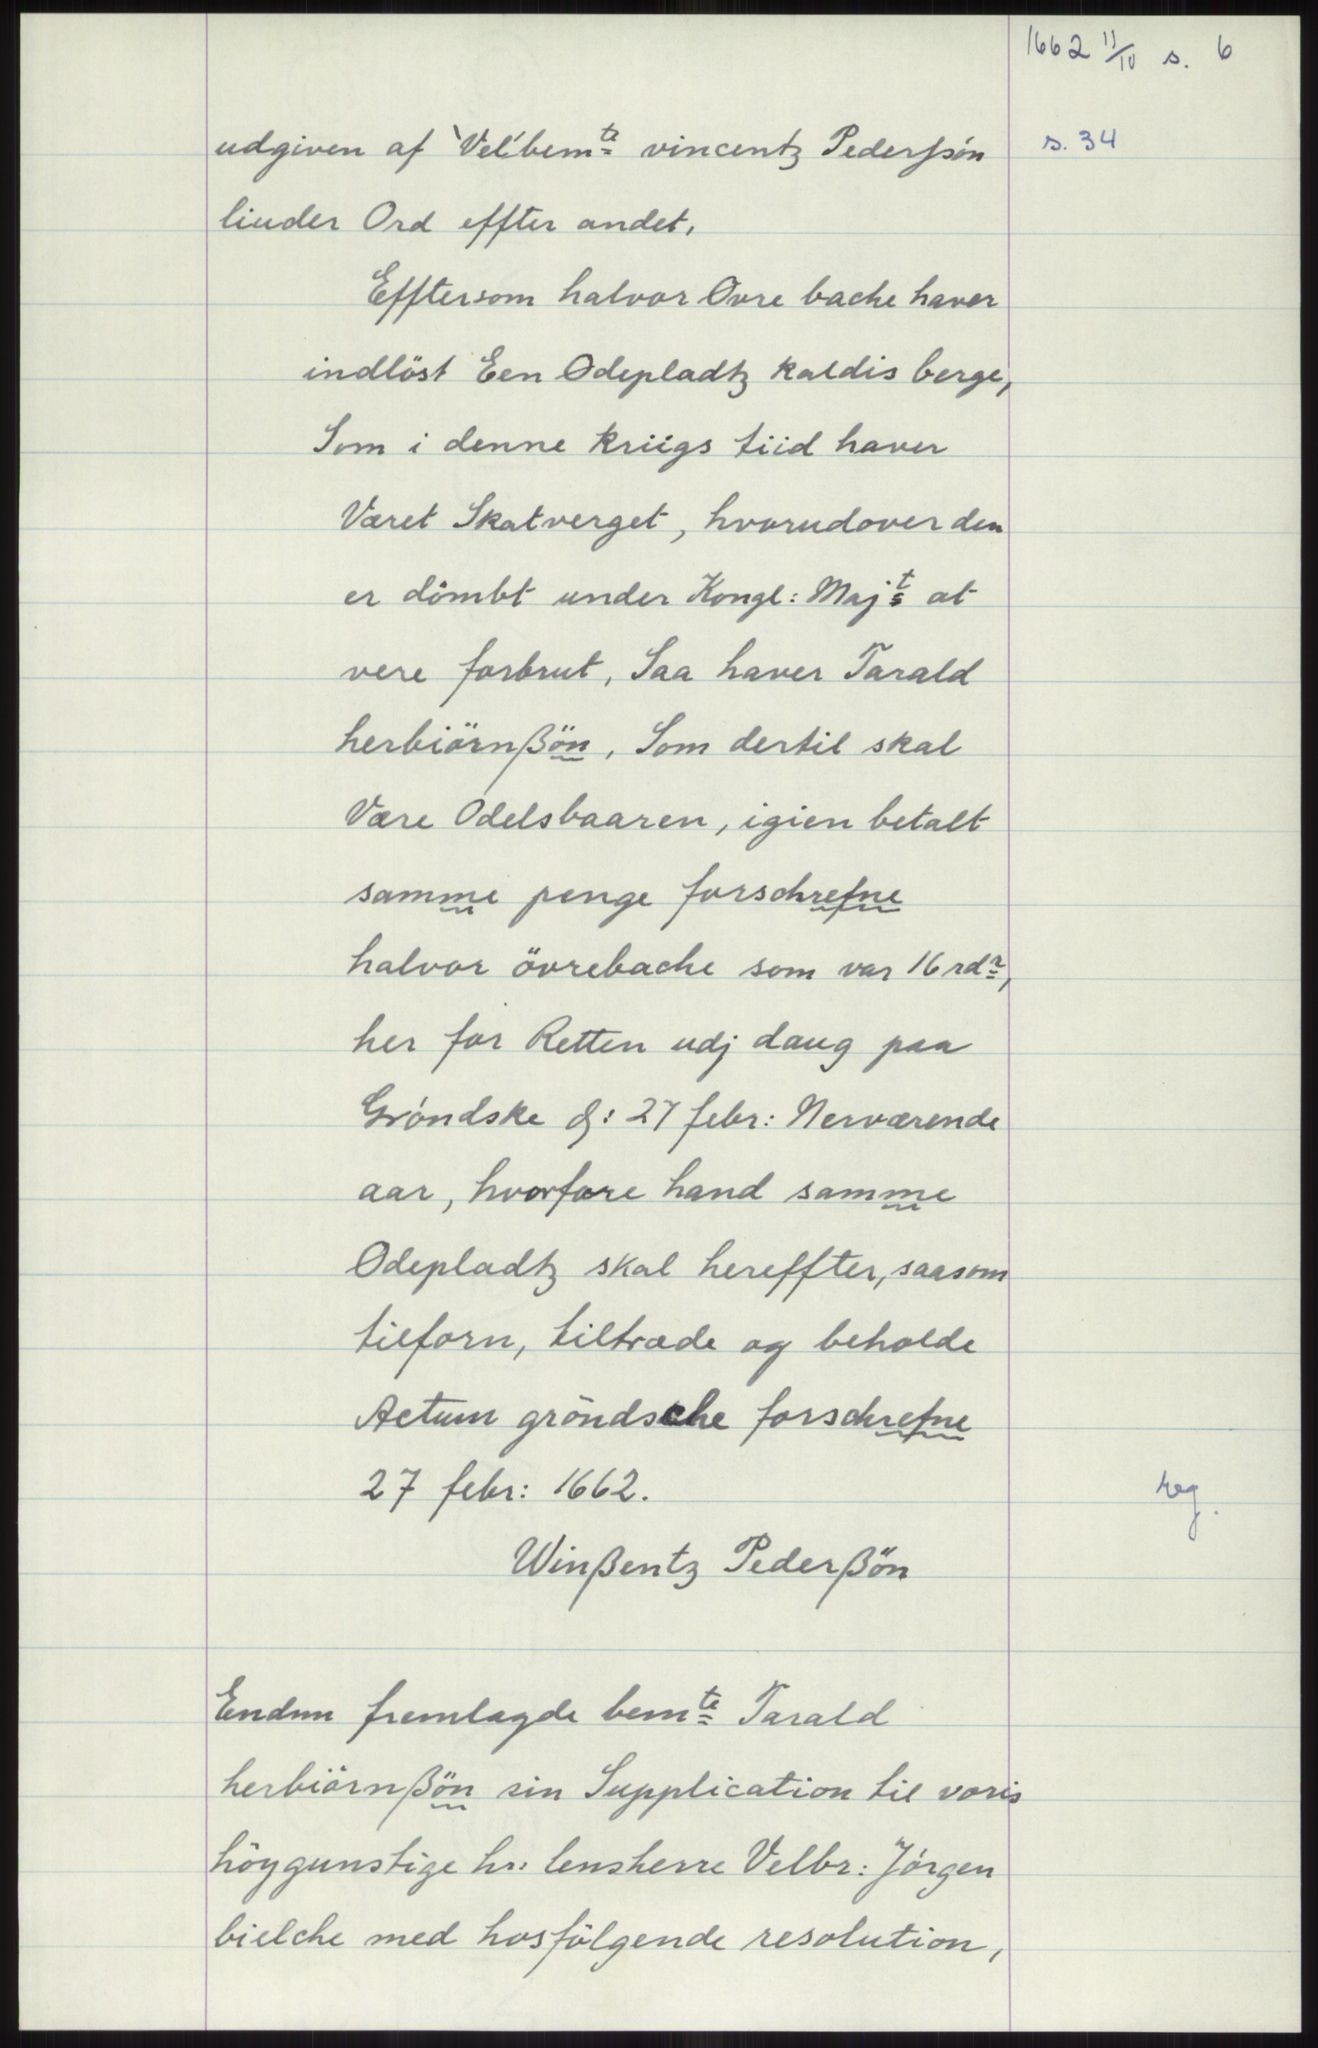 1662 11/10 s. 6
udgiven af 'Vel'bemte vincentz Pederſsön
s. 34
liuder Ord effter andet,
Efftersom halvor Ovre bache haver
indlöst Een Odepladtz kaldis berge,
Som i denne kriigs tiid haver
Været Skatverget, hvorudover den
er dömbt under Kongl: Majts at
vere forbrut, Saa haver Tarald
herbiörnßön, Som dertil skal
Være Odelsbaaren, igien betalt
samme penge forschrefne
halvor övrebache som var 16 rdr,
her for Retten udj daug paa
Gröndske d: 27 febr: Nerværende
aar, hvorfore hand samme
Odepladtz skal hereffter, saasom
tilforn, tiltræde og beholde
Actum gröndsche forschrefne
27 febr: 1662.
reg.
Winßentz Pederßön
Endnu fremlagde bemte Tarald
herbiörnßön sin Supplication til voris
höygunstige hr: lensherre Velbr: Jörgen
bielche med hosfölgende resolution,